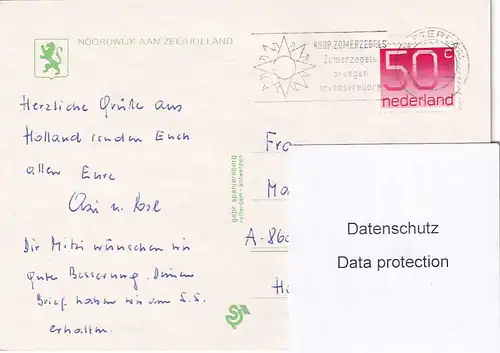 NOORDWIJK AAN ZEE/HOLLAND
KOOP ZOMERZEGELS
Zomerzegels
brengen
levensvreugde
50 c
nederland
Herzliche Grüße aus
Holland senden Euch
allen Eure
u. Rose
Dir Mitzi wünschen wir
gute Besserung. Deinen
Brief haben wir am 5.5.
erhalten.
gebr. spanjersberg
rotterdam - antwerpen
Fra
Ma
A-860
H
Datenschutz
Data protection